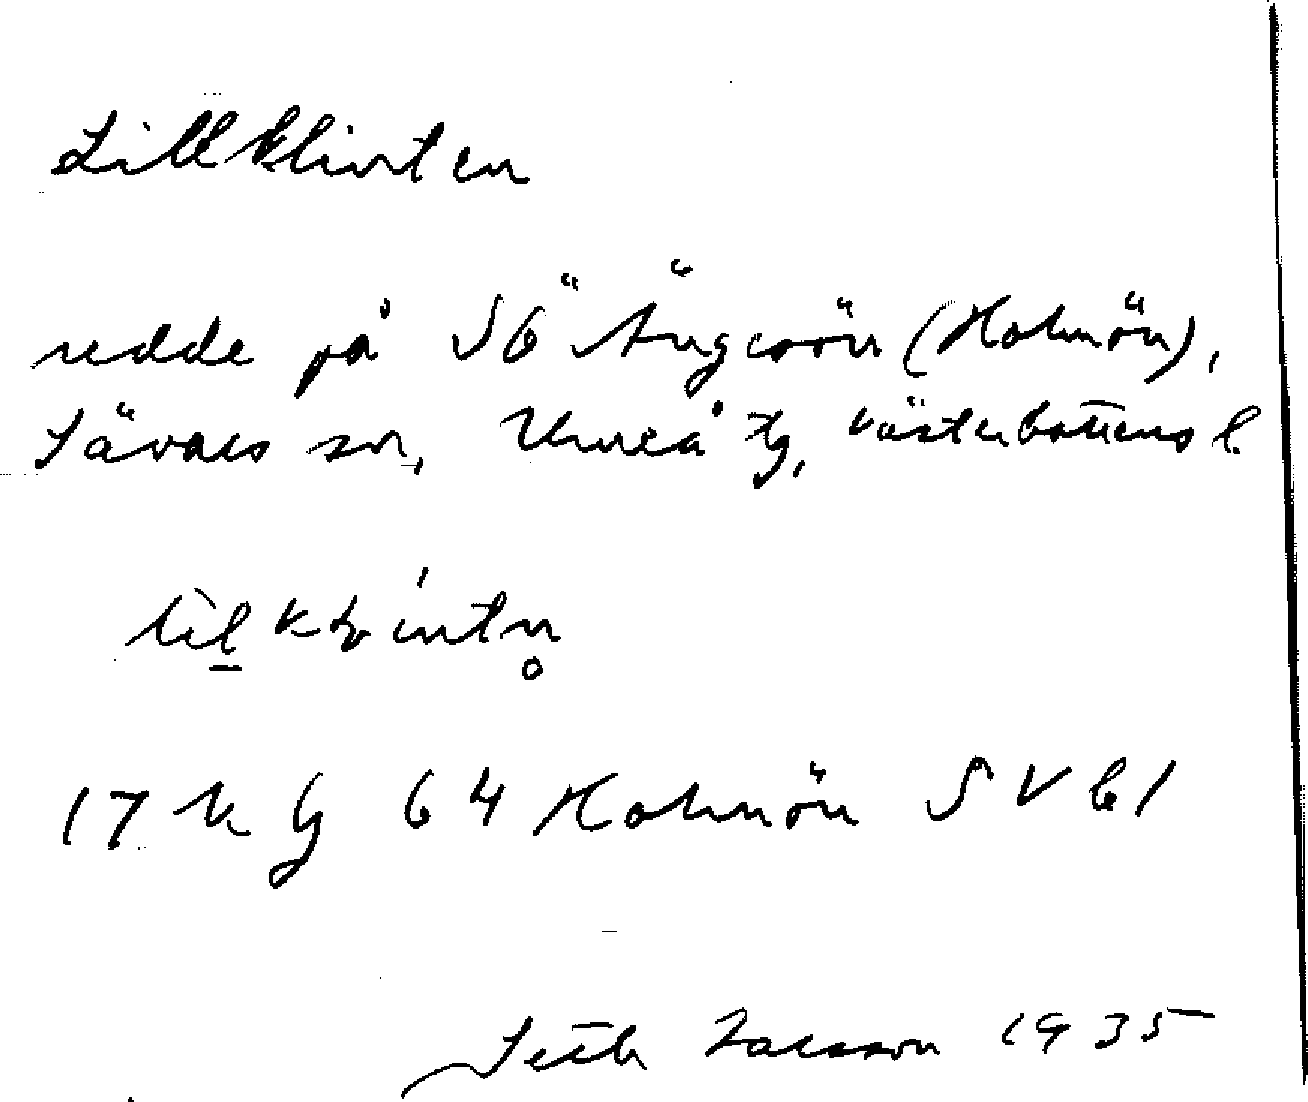 Lillklinten
udde på SÖ Ängesön (Holmön),
Sävars sn, Umeå tg, Västerbottens l.
17 k g 64 Holmön SV bl
Seth Larsson 1935